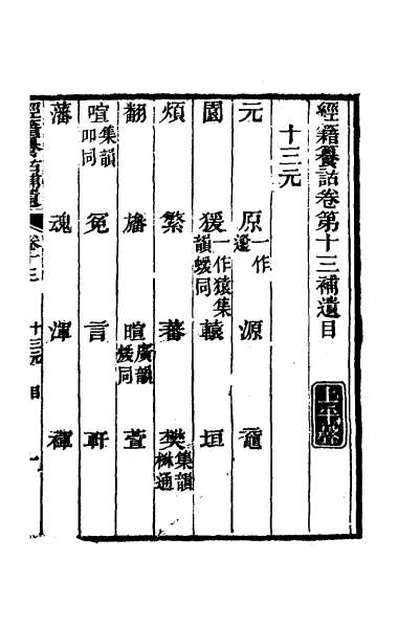 經籍籑詁卷第十三補遺目
十三元
元 原一作邍 源 黿
園 猨一作猿集韻蝯同 轅 垣
煩 繁 蕃 樊集韻棥通
翻 旛 暄廣韻煖同 萱
喧集韻吅同 冤 言 軒
藩 魂 渾 褌
經籍籑詁補遺 卷十三 十三元 目 一